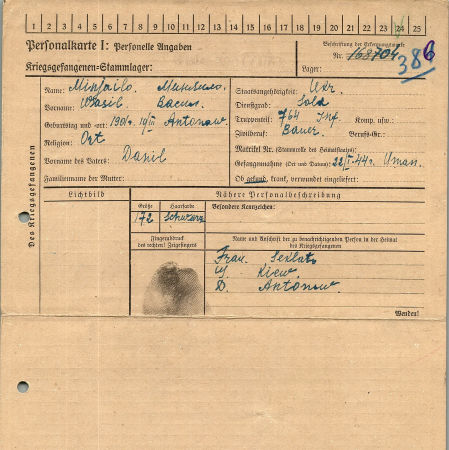 1 2 3 4 5 6 7 8 9 10 11 12 13 14 15 16 17 18 19 20 21 22 23 24 25
Personalkarte I: Personelle Angaben
Kriegsgefangenen-Stammlager:
Beschriftung der Erkennungsmarke
Nr. 168704
386
Lager:
Des Kriegsgefangenen
Name: Minjailo
Vorname: Wasil
Geburtstag und -ort: 1904 Antonow
Religion: Ort
Vorname des Vaters: Danil
Familienname der Mutter:
Staatsangehörigkeit: Ukr.
Dienstgrad: Sold
Truppenteil: 764 Inf. Komp. usw.:
Zivilberuf: Bauer. Berufs-Gr.:
Matrikel Nr. (Stammrolle des Heimatstaates):
Gefangennahme (Ort und Datum): 44 Uman.
Ob gesund, krank, verwundet eingeliefert:
Lichtbild
Nähere Personalbeschreibung
Größe Haarfarbe Besondere Kennzeichen:
172 Schwarz
Fingerabdruck
des rechten Zeigefingers
Name und Anschrift der zu benachrichtigenden Person in der Heimat
des Kriegsgefangenen
Frau.
Kiew
D. Antonow.
Wenden!